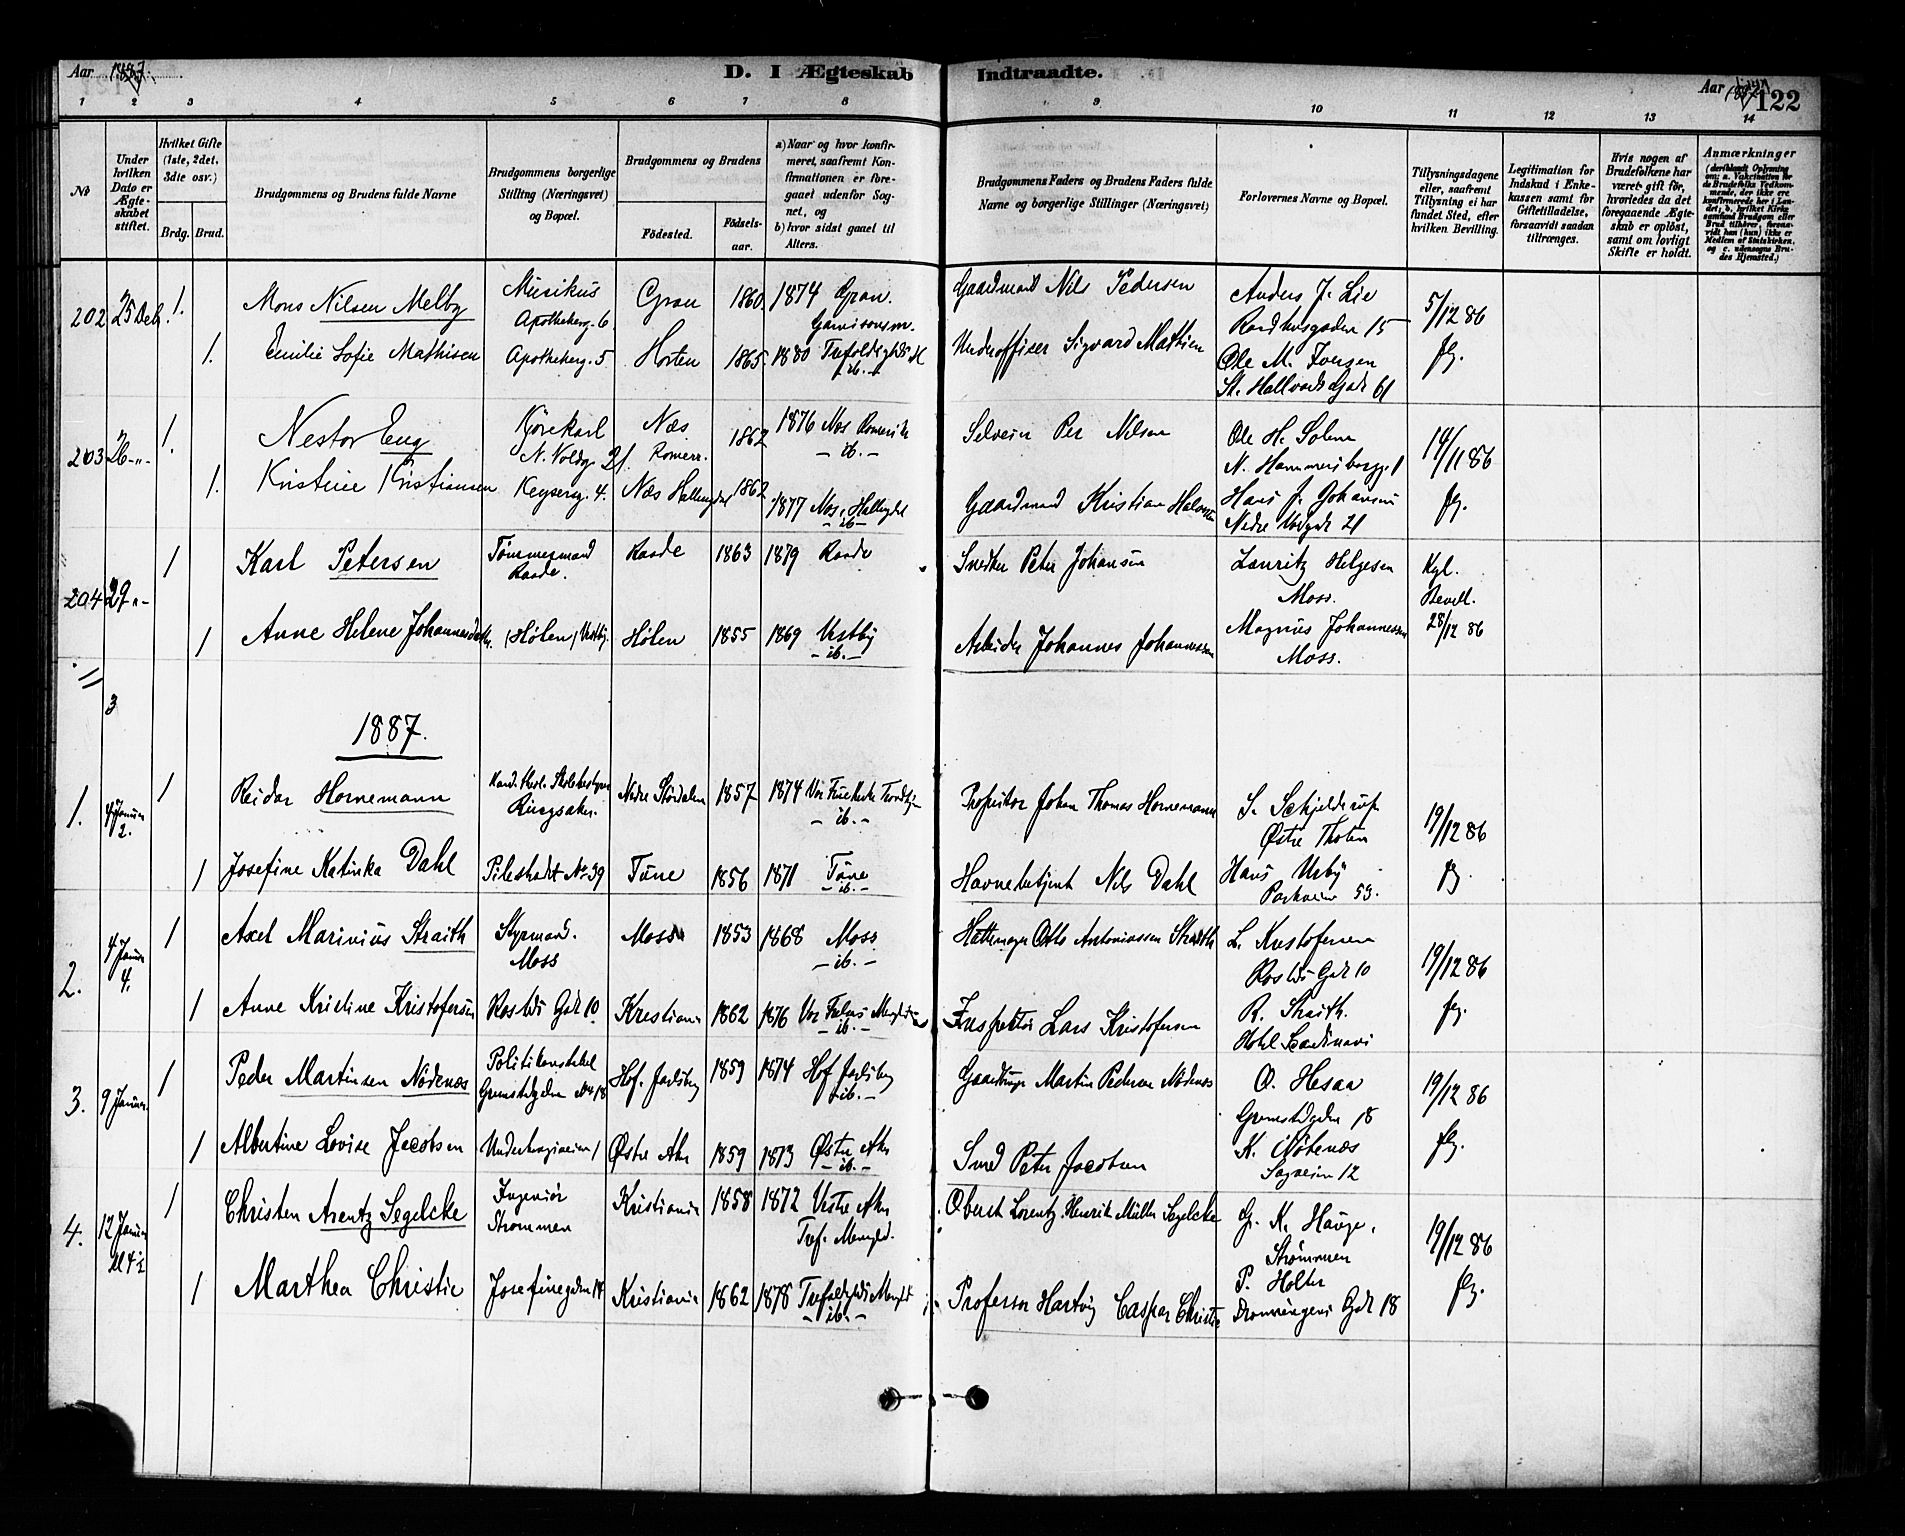 Aar 1887. D. I Ægteskab Indtraadte. Aar 122
1 2 3 4 5 6 7 8 9 10 11 12 13 14
No
Under hvilken Dato er Ægteskabet stiftet.
Hvilket Gifte (1ste, 2det, 3die osv.)
Brdg. Brud.
Brudgommens og Brudens fulde Navne
Brudgommens borgerlige Stilling (Næringsvei) og Bopæl.
Brudgommens og Brudens
Fødested.
Fødselsaar.
a) Naar og hvor konfirmeret, saafremt Konfirmationen er foregaaet udenfor Sognet, og
b) hvor sidst gaaet til Alters.
Brudgommens Faders og Brudens Faders fulde Navne og borgerlige Stillinger (Næringsvei)
Forlovernes Navne og Bopæl.
Tillysningsdagene eller, saafremt Tillysning ei har fundet Sted, efter hvilken Bevilling.
Legitimation for Indskud i Enkekassen samt for Giftetilladelse, forsaavidt saadan tiltrænges.
Hvis nogen af Brudefolkene har været gift før, hvorledes da det foregaaende Ægteskab er opløst, samt om lovligt Skifte er holdt.
Anmærkninger (deriblandt Oplysning om: a. Vakcination for de Brudefolks Vedkommende, der ikke ere konfirmerede her i Landet; b. hvilket Kirkesamfund Brudgom eller Brud tilhører, forsaavidt han (hun) ikke er Medlem af Statskirken, og c. udensogns Brudes Hjemsted.)
202 25 Deb. 1. Mons Nilsen Melby Musikus Apothekerg. 6 Gran 1860. 1874 Gran. Garnisonsm. Gaardmand Nils Pedersen Anders J. Lie Raadhusgaden 15 5/12 86
1. Emilie Sofie Mathisen Apothekerg. 5 Horten 1865. 1880 Trefoldigheds ib. Underofficer Sigvard Mathisen Ole M. Iversen St. Hallvards Gade 61 fg.
203 26 -"- 1. Nestor Eng Kjørekarl N. Voldg. 21. Næs Romer. 1862 1876 Næs Romerik -ib.- Selveier Per Nilsen Ole H. Solem N. Hammersborgg. 1 14/11 86
1. Kristine Kristiansen Keyserg. 4. Næs Hallingdal 1862 1877 Næs, Hallingdal -ib- Gaardmand Kristian Halvorsen Hans J. Johansen Nedre Voldgade 21 fg.
204 29 -"- 1 Karl Petersen Tømmermand Raade. Raade 1863 1879 Raade Snedker Peter Johansen Lauritz Helgesen Moss. Kgl. Bevill.
1 Anne Helene Johannesdatter. (Hølen) Vestby. Hølen 1855 1869 Vestby -ib.- Arbeider Johannes Johannessen Magnus Johannessen Moss. 28/12 86
11
3
1887.
1. 4 Januar 2. 1 Reidar Hornemann Kand. theol. Skolebestyrer Ringsaker. Nedre Stördalen 1857 1874 Vor Frue Kirke Trondhjem -ib.- Proprietør Johan Thomas Hornemann S. Schjelderup Østre Thoten 19/12 86
1 Josefine Katinka Dahl Pilestrædet No 39 Tune 1856 1871 Tune -ib- Havnebetjent Nils Dahl Hans Usby Parkveien 53. fg.
2. 4 Januar 4. 1 Axel Marinius Straith Styrmand. Moss Moss 1853 1868 Moss -ib.- Hattemager Otto Antoniussen Straith L. Kristofersen Rosteds Gade 10 19/12 86
1 Anne Kristine Kristofersen Rosteds Gade 10 Kristiania 1862 1876 Vor Frelsers Menighed -ib.- Inspektør Lars Kristofersen R. Straith. Hotel Scandinavie fg.
3. 9 Januar 1 Peder Martinsen Nödenæs Politikonstabel Grønstedgaden No 18 Hof. Jarlsberg 1859 1874 Hof Jarlsberg -ib.- Gaardbruger Martin Pedersen Nödenæs O. Hesaa 18 19/12 86
1 Albertine Lovise Jacobsen 1 Østre Aker 1859 1873 Østre Aker -ib.- Smed Peter Jacobsen K. Nötenæs Sagveien 12 fg.
4. 12 Januar Kl 4½ 1 Christen Arentz Segelcke Ingeniør Strømmen Kristiania 1858 1872 Vestre Aker Tref. Menighd. Oberst Lorentz Henrik Müller Segelcke G. K. Hauge. Strömmen 19/12 86
1 Marthea Christie Josefinegaden 14 Kristiania 1862 1878 Trefoldigheds Menighd -ib.- Professor Hartvig Caspar Christie P. Holter Dronningens Gade 18 fg.